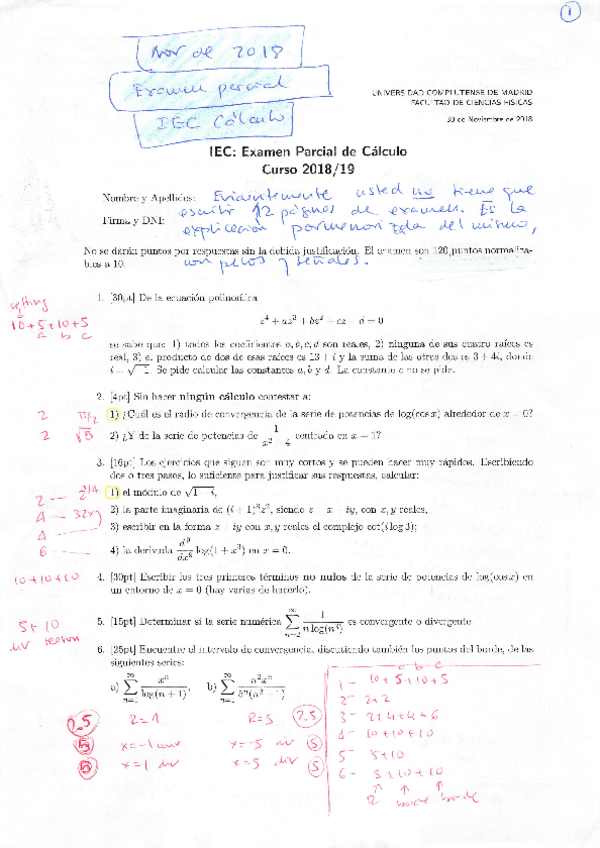 1
Nov de 2018
Examen parcial
IEC Cálculo
UNIVERSIDAD COMPLUTENSE DE MADRID
FACULTAD DE CIENCIAS FÍSICAS
30 de Noviembre de 2018
IEC: Examen Parcial de Cálculo
Curso 2018/19
Nombre y Apellidos: Evidentemente usted no tiene que
Firma y DNI: escribir 12 páginas de examen. Es la
explicación pormenorizada del mismo,
No se darán puntos por respuestas sin la debida justificación. El examen son 120 puntos normaliza-
dos a 10. con pelos y señales.
setting
10+5+10+5
a b c
1. [30pt] De la ecuación polinomica
se sabe que: 1) todos los coeficientes a, b, c, d son reales, 2) ninguna de sus cuatro raíces es
real, 3) el producto de dos de esas raíces es 13 + i y la suma de las otras dos es 3 + 4i, donde
i = √−1. Se pide calcular las constantes a, b y d. La constante c no se pide.
2. [4pt] Sin hacer ningún cálculo contestar a:
2 π/2 1) ¿Cuál es el radio de convergencia de la serie de potencias de log(cos x) alrededor de x = 0?
2 √5 2) ¿Y de la serie de potencias de 1/(x²−4) centrada en x = 1?
3. [16pt] Los ejercicios que siguen son muy cortos y se pueden hacer muy rápidos. Escribiendo
dos o tres pasos, lo suficiente para justificar sus respuestas, calcular:
2 — 2^1/4 1) el módulo de √1−i,
4 — 32xy 2) la parte imaginaria de (i + 1)⁸z², siendo z = x + iy, con x, y reales,
4 — 3) escribir en la forma x + iy con x, y reales el complejo cot(i log 3);
6 — 4) la derivada d⁹/dx⁹ log(1 + x³) en x = 0.
10+10+10 4. [30pt] Escribir los tres primeros términos no nulos de la serie de potencias de log(cos x) en
un entorno de x = 0 (hay varias de hacerlo).
5+10
div reason
5. [15pt] Determinar si la serie numérica ∑ 1/(n log(n³)) es convergente o divergente.
6. [25pt] Encuentre el intervalo de convergencia, discutiendo también los puntos del borde, de las
siguientes series:
a) ∑ xⁿ/log(n + 1), b) ∑ n²xⁿ/5ⁿ(n²+1)
2.5 R=1 R=5 2.5
5 x=-1 conv x=-5 div 5
5 x=1 div x=5 div 5
a b c
1- 10+5+10+5
2- 2+2
3- 2+4+4+6
4- 10+10+10
5- 5+10
6- 5+10+10
R borde borde